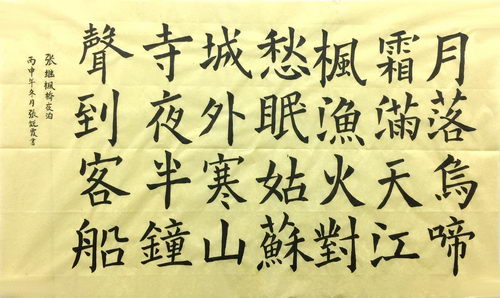 月落烏啼
霜滿天江
楓漁火對
愁眠姑蘇
城外寒山
寺夜半鐘
聲到客船
張繼楓橋夜泊
丙申年冬月張霞書